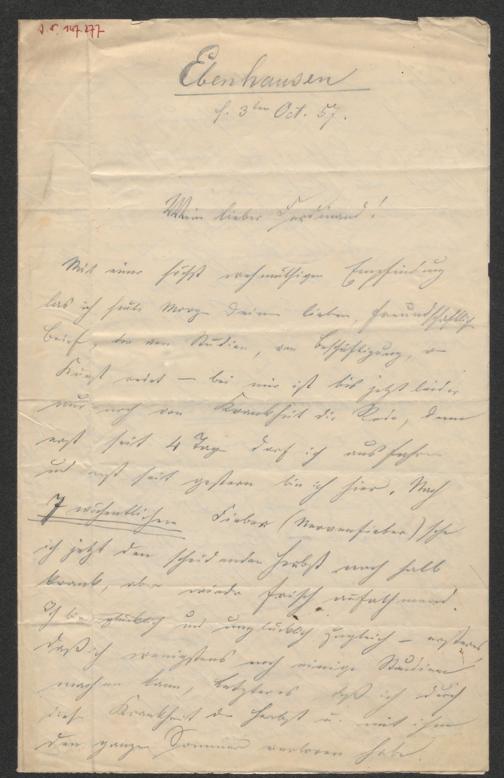 J. N. 147.277
Ebenhausen
d. 3ten Oct. 57.
Mein lieber Ferdinand!
Mit einer höchst wehmüthigen Empfindung
las ich heute Morg. Deinen lieben, freundschaftlich
Brief, der von Studien, von Beschäftigung, v.
Kunst redet – bei mir ist bis jetzt leider
nur noch von Krankheit die Rede, denn
erst seit 4 Tag. darf ich ausfahren
und erst seit gestern bin ich hier. Nach
7 wöchentlichem Fieber (Nervenfieber) sehe
ich jetzt den scheidenden Herbst noch halb
krank, aber wieder frisch aufathmend.
Ich bin glücklich und unglücklich zugleich – ersteres
daß ich wenigstens noch einige Studien
machen kann, letzteres daß ich durch
diese Krankheit den Herbst u. mit ihm
den ganzen Sommer verloren habe.